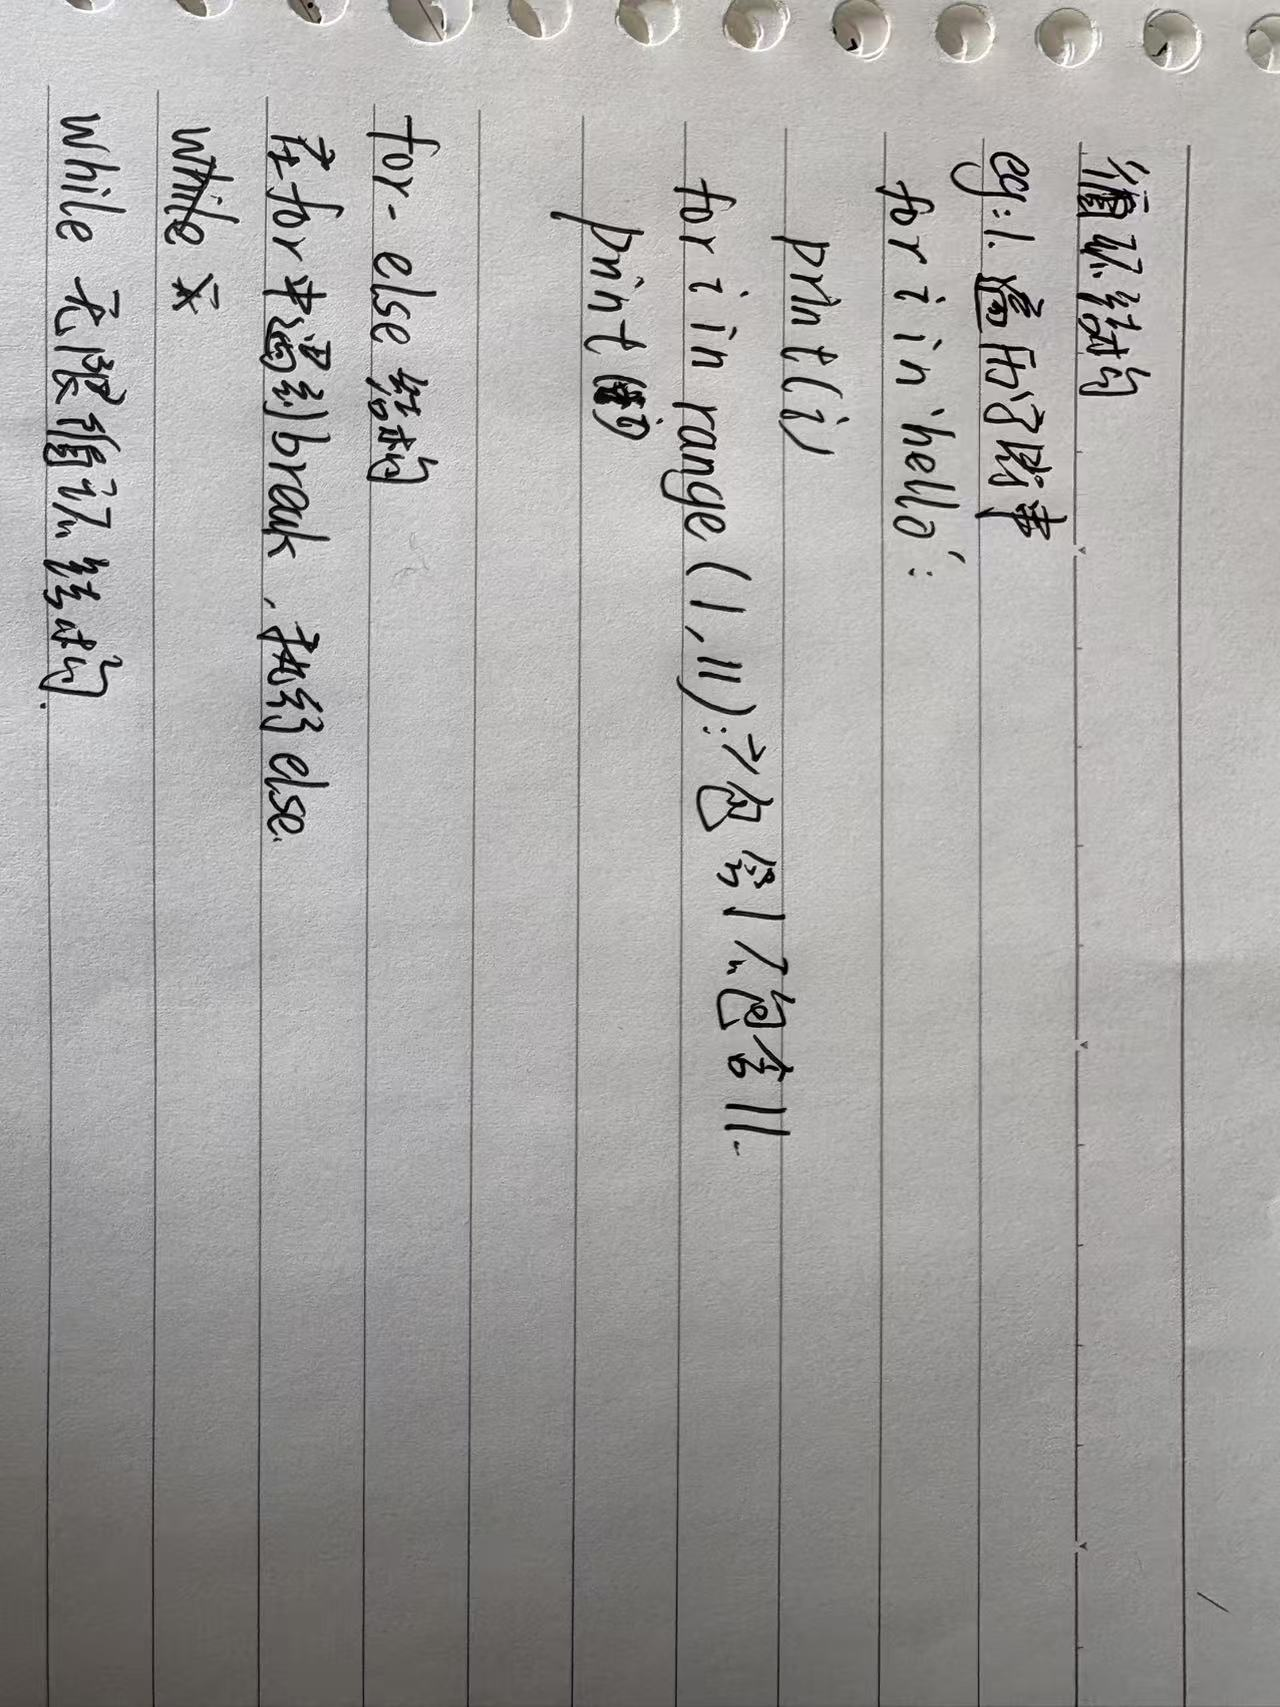 循环结构
eg:1. 遍历字符串
for i in 'hello':
print(i)
for i in range (1,11): → 包含1不包含11.
print(i)
for-else 结构
在for中遇到break，执行else.
while
while 无限循环结构.